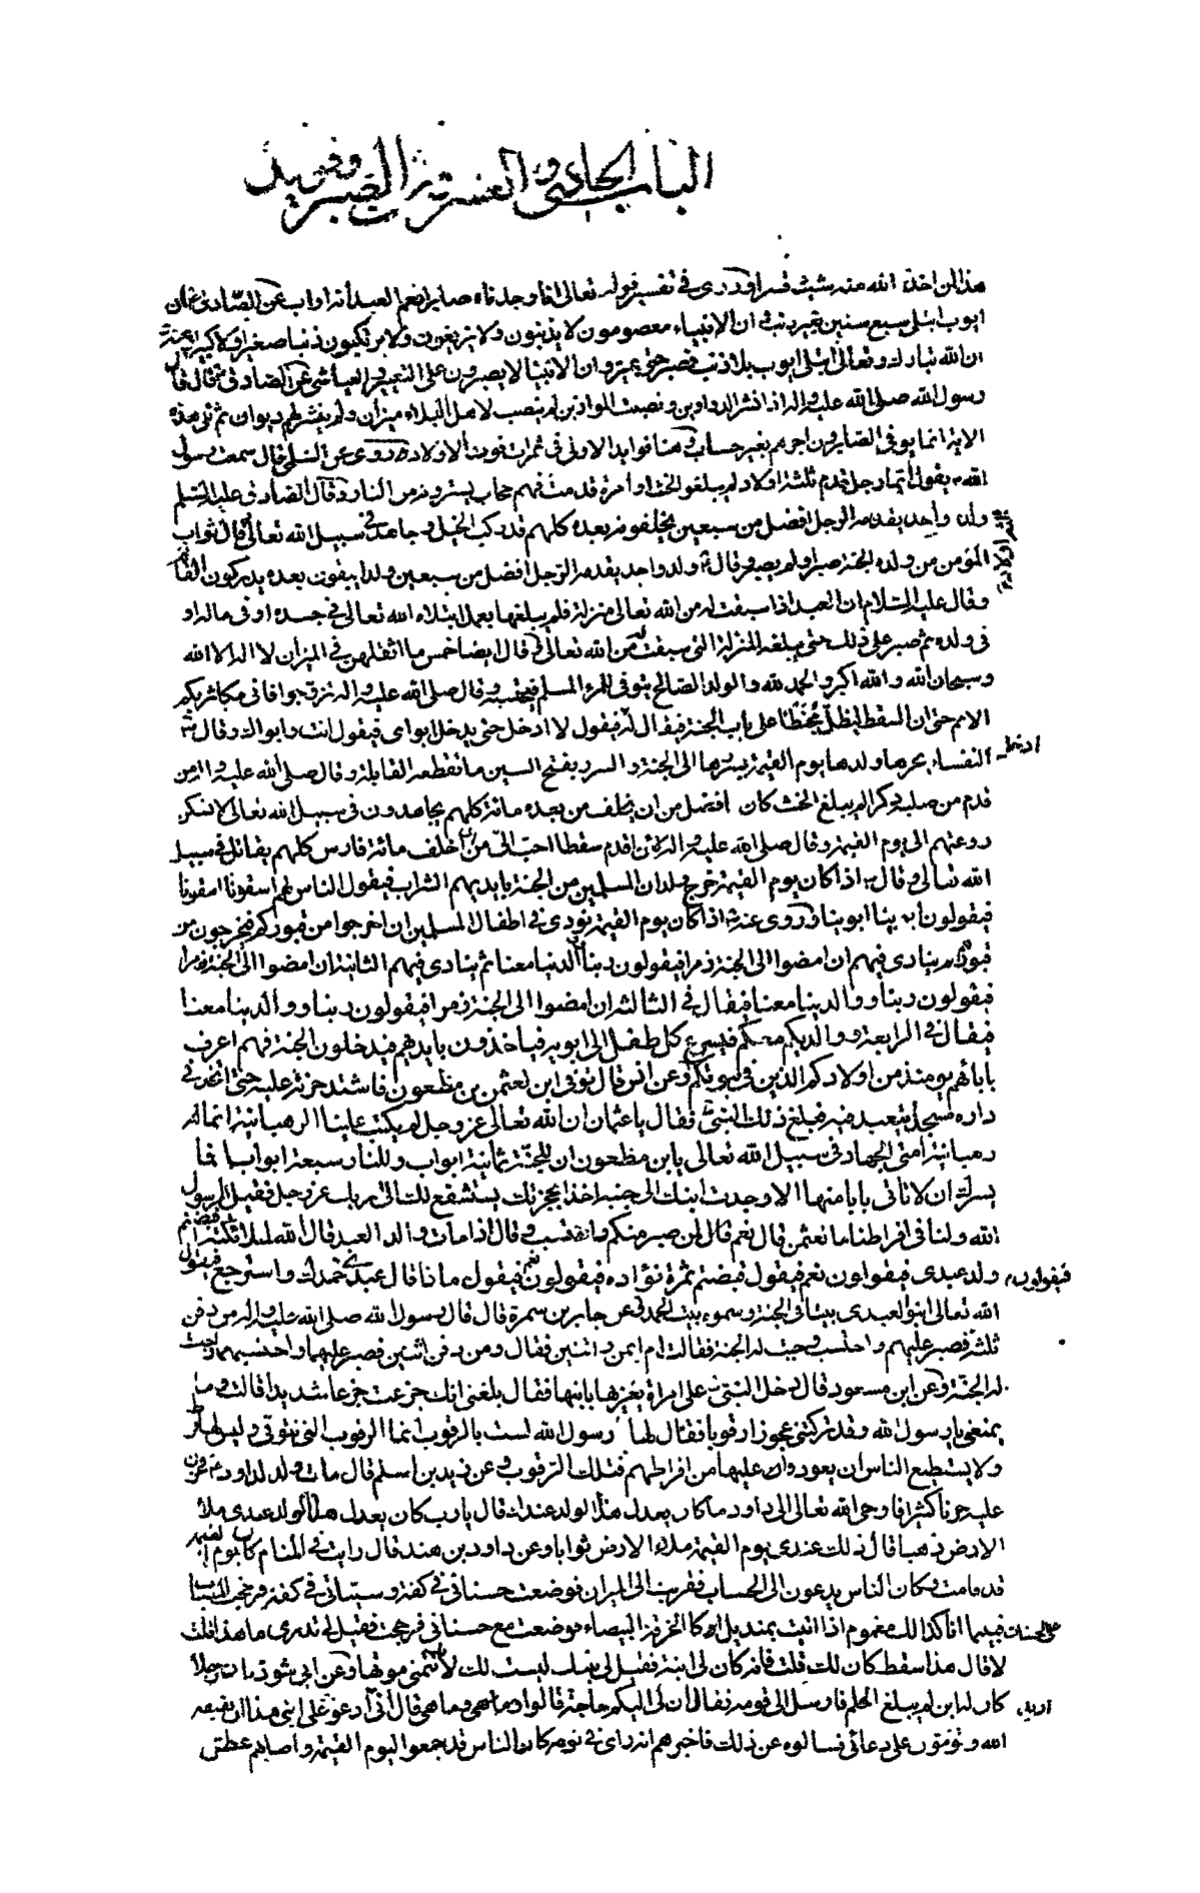 الباب الحادي والعشرون في الصبر وفقد
ايوب ابتلى سبع سنين بغير ذنب ان الانبياء معصومون لا يذنبون ولا يزيغون ولا يرتكبون ذنبا صغيرا ولا كبيرا
ان الله تبارك وتعالى ابتلى ايوب بلا ذنب فصبر حتى عير وان الانبيا لا يصبرون على التعيير العياشي عن الصادق قال قال
رسول الله صلى الله عليه واله اذا نشر الدواوين ونصبت الموازين لم ينصب لاهل البلاء ميزان ولم ينشر لهم ديوان ثم تلى هذه
الاية انما يوفى الصابرون اجرهم بغير حساب وهنا فوايد الاولى في ثمرات فوت الاولاد روى عن السلمي قال سمعت رسول
الله يقول ايما رجل قدم ثلثة اولاد لم يبلغوا الحنث او امرة قدمت فهم حجاب يسترونه من النار وقال الصادق عليه السلم
ولد واحد يقدمه الرجل افضل من سبعين يخلفونه بعده كلهم قد ركب الخيل وجاهد في سبيل الله تعالى وقال ثواب
المؤمن من ولده الجنة صبر او لم يصبر وقال ولد واحد يقدمه الرجل افضل من سبعين ولدا يبقون بعده يدركون القائم
وقال عليه السلام ان العبد اذا سبقت له من الله تعالى منزلة فلم يبلغها بعمل ابتلاه الله تعالى في جسده او في ماله او
في ولده ثم صبر على ذلك حتى يبلغه المنزلة التي سبقت من الله تعالى وقال ايضا خمس ما اثقلهن في الميزان لا اله الا الله
وسبحان الله والله اكبر والحمد لله والولد الصالح يتوفى للمرء المسلم فيحتسبه وقال صلى الله عليه واله تزوجوا فاني مكاثر بكم
الامم حتى ان السقط ليظل محبنطئا على باب الجنة فيقال له فيقول لا ادخل حتى يدخل ابواى فيقول انت وابواك وقال
النفساء يجرها ولدها يوم القيمة بسررها الى الجنة والسرر بفتح السين ما تقطعه القابلة وقال صلى الله عليه واله من
قدم من صلبه ذكرا لم يبلغ الحنث كان افضل من ان يخلف من بعده مائة كلهم يجاهدون في سبيل الله تعالى لا تسكن
روعتهم الى يوم القيمة وقال صلى الله عليه واله لان اقدم سقطا احب الى من ان اخلف مائة فارس كلهم يقاتل في سبيل
الله تعالى وقال اذا كان يوم القيمة خرج ولدان المسلمين من الجنة بايديهم الشراب فيقول الناس لهم اسقونا اسقونا
فيقولون ابوينا ابوينا وروى عنه اذا كان يوم القيمة نودى في اطفال المسلمين ان اخرجوا من قبوركم فيخرجون من
قبورهم ينادى فيهم ان امضوا الى الجنة زمرا فيقولون ربنا والدينا معنا ثم ينادى فيهم الثانية ان امضوا الى الجنة زمرا
فيقولون ربنا ووالدينا معنا فيقال في الثالثة ان امضوا الى الجنة زمرا فيقولون ربنا ووالدينا معنا
فيقال في الرابعة ووالديكم معكم فيسرع كل طفل الى ابويه فياخذون بايديهم فيدخلون الجنة فهم اعرف
بابائهم يومئذ من اولادكم الذين في بيوتكم وعن انس قال توفى ابن لعثمن بن مظعون فاشتد حزنه عليه حتى اتخذ في
داره مسجدا يتعبد فيه فبلغ ذلك النبي فقال يا عثمان ان الله تعالى عز وجل لم يكتب علينا الرهبانية انما
رهبانية امتى الجهاد في سبيل الله تعالى يا بن مظعون ان للجنة ثمانية ابواب وللنار سبعة ابواب افما
يسرك ان لا تاتى بابا منها الا وجدت ابنك الى جنبه اخذا بحجزتك يستشفع لك الى ربك عز وجل فقيل يا رسول
الله ولنا في افراطنا ما لعثمن قال نعم قال لمن صبر منكم واحتسب وقال اذا مات ولد العبد قال الله لملائكته اقبضتم
ولد عبدى فيقولون نعم فيقول قبضتم ثمرة فؤاده فيقولون نعم فيقول ماذا قال عبدى حمدك واسترجع فيقول
الله تعالى ابنوا لعبدى بيتا في الجنة وسموه بيت الحمد وعن جابر بن سمرة قال قال رسول الله صلى الله عليه واله من دفن
ثلثة فصبر عليهم واحتسب وجبت له الجنة فقالت ام ايمن واثنين فقال ومن دفن اثنين فصبر عليهما واحتسبهما وجبت
له الجنة وعن ابن مسعود قال دخل النبي على امراة يعزيها بابنها فقال بلغنى انك جزعت جزعا شديدا قالت وما
يمنعنى يا رسول الله وقد تركنى عجوزا رقوبا فقال لها رسول الله لست بالرقوب انما الرقوب التي تتوفى وليس لها
ولا يستطيع الناس ان يعودوا عليها من افراطهم فتلك الرقوب وعن زيد بن اسلم قال مات ولد لداود فحزن
عليه حزنا كثيرا فاوحى الله تعالى الى داود ما كان يعدل هذا الولد عندك قال يا رب كان يعدل هذا الولد عندى ملأ
الارض ذهبا قال ذلك عندى يوم القيمة ملاء الارض ثوابا وعن داود بن هند قال رايت في المنام كان يوم القيمة
قد قامت وكان الناس يدعون الى الحساب فقربت الى الميزان فوضعت حسناتى في كفة وسيئاتى في كفة فرجحت السيئات
على الحسنات فبينما انا كذلك مغموم اذا اتيت بمنديل او كالخرقة البيضاء فوضعت مع حسناتى فرجحت فقيل لي تدرى ما هذا قلت
لا قال هذا سقط كان لك قلت فانه كان لى ابنة فقيل لى بنتك ليست لك لانك تتمنى موتها وعن ابي شوذب ان رجلا
كان له ابن لم يبلغ الحلم فارسل الى قومه فقال ان لى اليكم حاجة قالوا ما هي قال انى ادعو على ابنى هذا ان يقبضه
الله وتؤمنون على دعائى فسالوه عن ذلك فاخبرهم انه راى في نومه كان الناس قد جمعوا اليوم القيمة واصابهم عطش